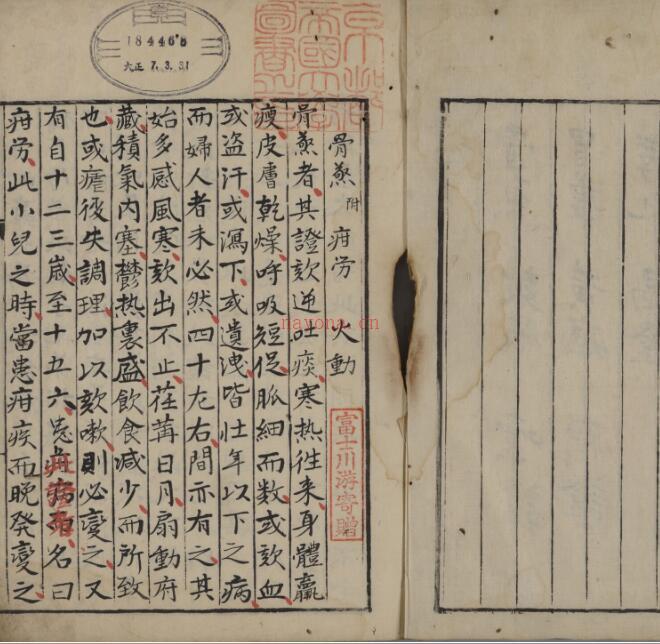 184465
大正 7.3.31
京都
帝國大學
圖書之印
骨蒸 附 疳労 火動
骨蒸者其證欬逆吐痰寒热往来身體羸
瘦皮膚乾燥呼吸短促脈細而数或欬血
或盗汗或瀉下或遺洩皆壮年以下之病
而婦人者未必然四十左右間亦有之其
始多感風寒欬出不止荏苒日月扇動府
藏積氣内塞鬱热裏盛飲食减少而所致
也或瘧後失調理加以欬嗽則必變之又
有自十二三歳至十五六患病而名曰
疳労此小兒之時當患疳疾而晩発變之
富士川游寄贈
nayona.cn